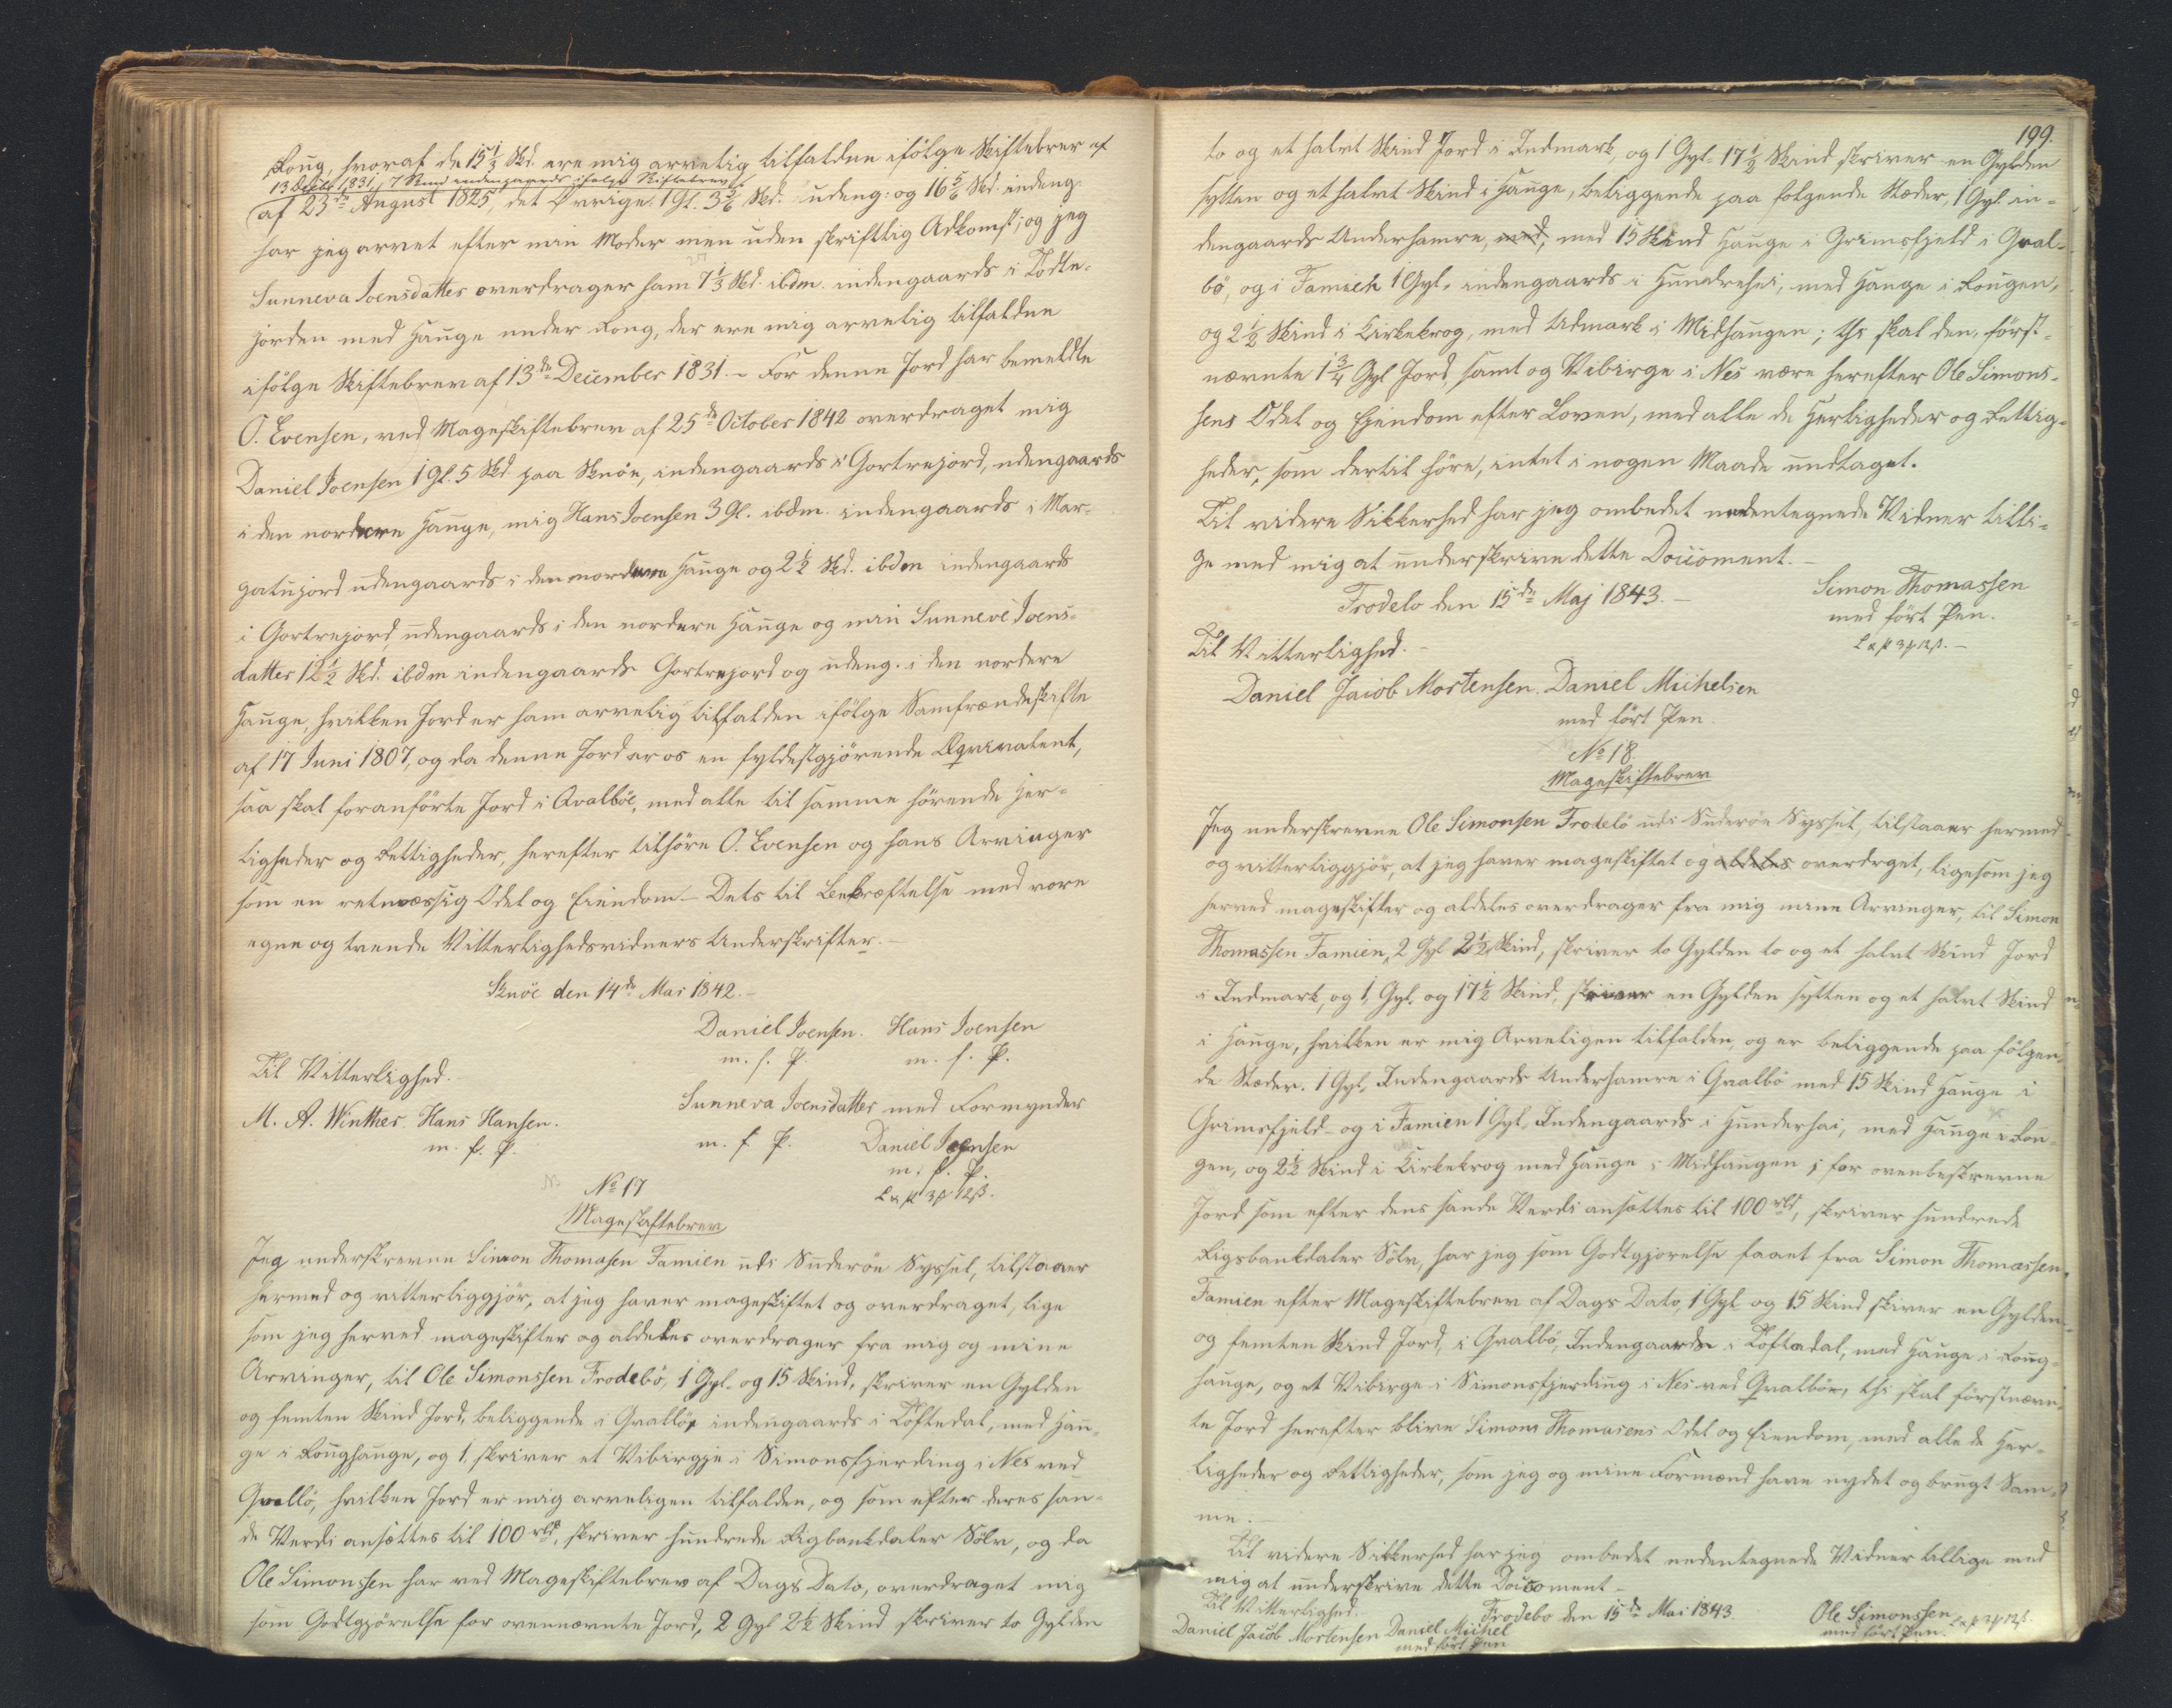 Roug, hvoraf de 15 1/3 Skd. ere mig arvelig tilfaldne ifölge Skiftebrev af
13 Decbr 1831, 7 Skind indengaards ifølge Skiftebrev
af 23de August 1825, det Øvrige 1 Gl. 3 5/6 Skd. udeng: og 16 5/6 Skd. indeng.
har jeg arvet efter min Moder men uden skriftlig Adkomst; og jeg
Sunneva Joensdatter overdrager ham 7 1/3 Skd. ibdm. indengaards i Todte-
jorden med Hauge under Roug, der ere mig arvelig tilfaldne
ifölge Skiftebrev af 13de December 1831. – For denne Jord har bemeldte
O. Evensen, ved Mageskiftebrev af 25de October 1842 overdraget mig
Daniel Joensen 1 Gl. 5 Skd. paa Sknöe, indengaards i Gortrejord, udengaards
i den nordere Hauge, mig Hans Joensen 3 Gl. ibdm. indengaards i Mar-
gatujord udengaards i den nordere Hauge og 2 1/2 Skd. ibdm indengaards
i Gortrejord, udengaards i den nordere Hauge og min Sunneve Joens-
datter 12 1/2 Skd. ibdm indengaards Gortrejord og udeng. i den nordere
Hauge, hvilken Jord er ham arvelig tilfalden ifölge Samfrændeskifte
af 17 Juni 1807, og da denne Jord er os en fyldestgjörende Æqvivalent,
saa skal foranförte Jord i Qvalböe, med alle til samme hörende Her-
ligheder og Rettigheder, herefter tilhöre O. Evensen og hans Arvinger
som en retmæssig Odel og Eiendom – Dets til Bekræftelse med vore
egne og tvende Vitterlighedsvidners Underskrifter. –
Sknöe den 14de Mai 1842. –
Daniel Joensen. Hans Joensen
m. f. P. m. f. P.
Til Vitterlighed.
Sunneva Joensdatter med Formynder
M. A. Winther. Hans Hansen.
m. f. P. Daniel Joensen
m. f. P.
m. f. P.
No 17
Mageskiftebrev
Jeg underskrevne Simon Thomasen Famien udi Suderöe Syssel, tilstaaer
hermed og vitterliggjör, at jeg haver mageskiftet og overdraget, lige
som jeg herved mageskifter og aldeles overdrager fra mig og mine
Arvinger, til Ole Simonssen Frodebö, 1 Gyl. og 15 Skind, skriver en Gylden
og femten Skind Jord, beliggende i Qvalbö, indengaards i Töftedal, med Hau-
ge i Roughauge, og 1, skriver et Vibirgje i Simonsfjerding i Nes ved
Qvalbö, hvilken Jord er mig arveligen tilfalden, og som efter deres san-
de Verdi ansættes til 100 rbd, skriver hundrede Rigbankdaler Sölv, og da
Ole Simonssen har ved Mageskiftebrev af Dags Dato, overdraget mig
som Godtgjörelse for ovennævnte Jord, 2 Gyl 2 1/2 Skind skriver to Gylden
199.
to og et halvt Skind Jord i Indmark, og 1 Gyl. 17 1/2 Skind skriver en Gylden
sytten og et halvt Skind i Hauge, beliggende paa folgende Stæder, 1 Gyl. in-
dengaards Underhamre, med, med 15 Skind Hauge i Grimsfjeld i Qval-
bö, og i Famieh 1 Gyl. indengaards i Hundrehei, med Hauge i Rougen,
og 2 1/2 Skind i Kirkekrog, med Udmark i Midhaugen; thi skal den först-
nævnte 1 3/4 Gyl Jord, samt og Vibirge i Nes være herefter Ole Simons-
sens Odel og Eiendom efter Loven, med alle de Herligheder og Rettig-
heder, som dertil höre, intet i nogen Maade undtaget.
Til videre Sikkerhed har jeg ombedet nedentegnede Vidner tilli-
ge med mig at underskrive dette Document. –
Frodebo den 15de Maj 1843. –
Simon Thomassen
med fört Pen.
Til Vitterlighed. –
Daniel Jacob Mortensen. Daniel Michelsen
med fört Pen.
No 18.
Mageskiftebrev
Jeg underskrevne Ole Simonsen Frodebö udi Suderöe Syssel, tilstaaer hermed
og vitterliggjör, at jeg haver mageskiftet og aldeles overdrget, ligesom jeg
herved mageskifter og aldeles overdrager fra mig mine Arvinger, til Simon
Thomassen Famien, 2 Gyl 2 1/2 Skind, skriver to Gylden to og et halvt Skind Jord
i Indmark, og 1, Gyl. og 17 1/2 Skind, skriver en Gylden sytten og et halvt Skind
i Hauge, hvilken er mig Arveligen tilfalden, og er beliggende paa fölgen-
de Stæder. 1 Gyl. Indengaards Underhamre i Qvalbö med 15 Skind Hauge i
Grimsfjeld – og i Famien 1 Gyl. Indengaards i Hunderhai, med Hauge i Rou-
gen, og 2 1/2 Skind i Kirkekrog med Hauge i Midhaugen; for ovenbeskrevne
Jord som efter dens sande Verdi ansættes til 100 rbd, skriver hundrede
Rigsbankdaler Sölv, har jeg som Godtgjorelse faaet fra Simon Thomassen
Famien efter Mageskiftebrev af Dags Dato, 1 Gyl. og 15 Skind skiver en Gylden
og femten Skind Jord, i Qvalbö, Indengaards i Töftedal, med Hauge i Roug-
hauge, og et Vibirge i Simonsfjerding i Nes ved Qvalböe, thi skal förstnævn-
te Jord herefter blive Simons Thomasens Odel og Eiendom, med alle de Her-
ligheder og Rettigheder, som jeg og mine Formænd have nydet og brugt Sam-
me. –
Til videre Sikkerhed har jeg ombedet nedentegnede Vidner tillige med
mig at underskrive dette Document –
Til Vitterlighed.
Frodebo den 15de Mai 1843.
Ole Simonssen
med fört Pen.
Daniel Jacob Mortensen Daniel Michel
med fört Pen